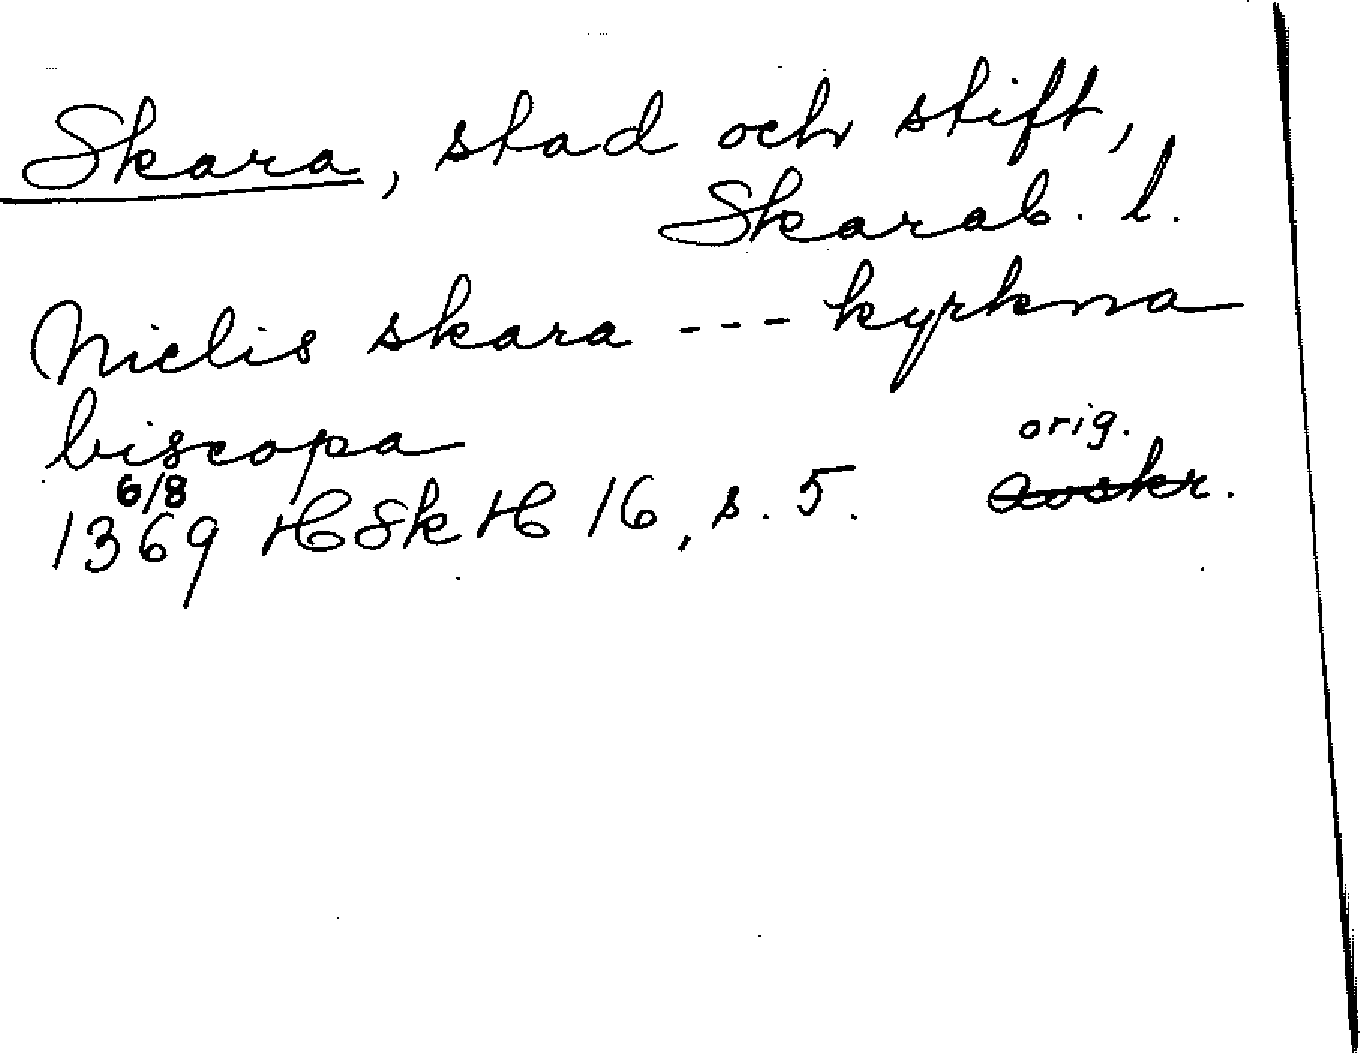 Skara, stad och stift,
Skarab. l.
Niclis skara --- kyrkna
biscopa
orig.
6/8
1369 HSkH 16, s. 5. avskr.